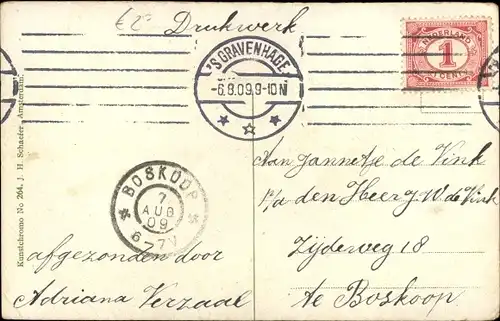 €2-
Drukwerk
NEDERLAND
1
1 CENT
'S GRAVENHAGE
-6.8.09.9-10N
Kunstchromo No 264. J. H. Schaefer, Amsterdam.
BOSKOOP
7
AUG
09
6-7V
Aan Jannetje de Vink
p/a den Heer J. W. de Vink
Zijdeweg 18
te Boskoop
afgezonden door
Adriana Verzaal